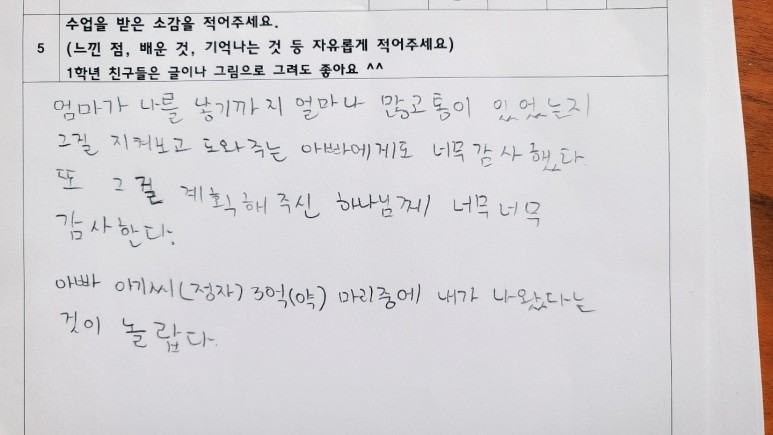 수업을 받은 소감을 적어주세요.
5 (느낀 점, 배운 것, 기억나는 것 등 자유롭게 적어주세요)
1학년 친구들은 글이나 그림으로 그려도 좋아요 ^^
엄마가 나를 낳기까지 얼마나 많고통이 있었는지
그걸 지켜보고 도와주는 아빠에게도 너무감사했다
또 그걸 계획해주신 하나님께 너무너무
감사한다.
아빠 아기씨(정자) 3억(약) 마리중에 내가 나왔다는
것이 놀랍다.